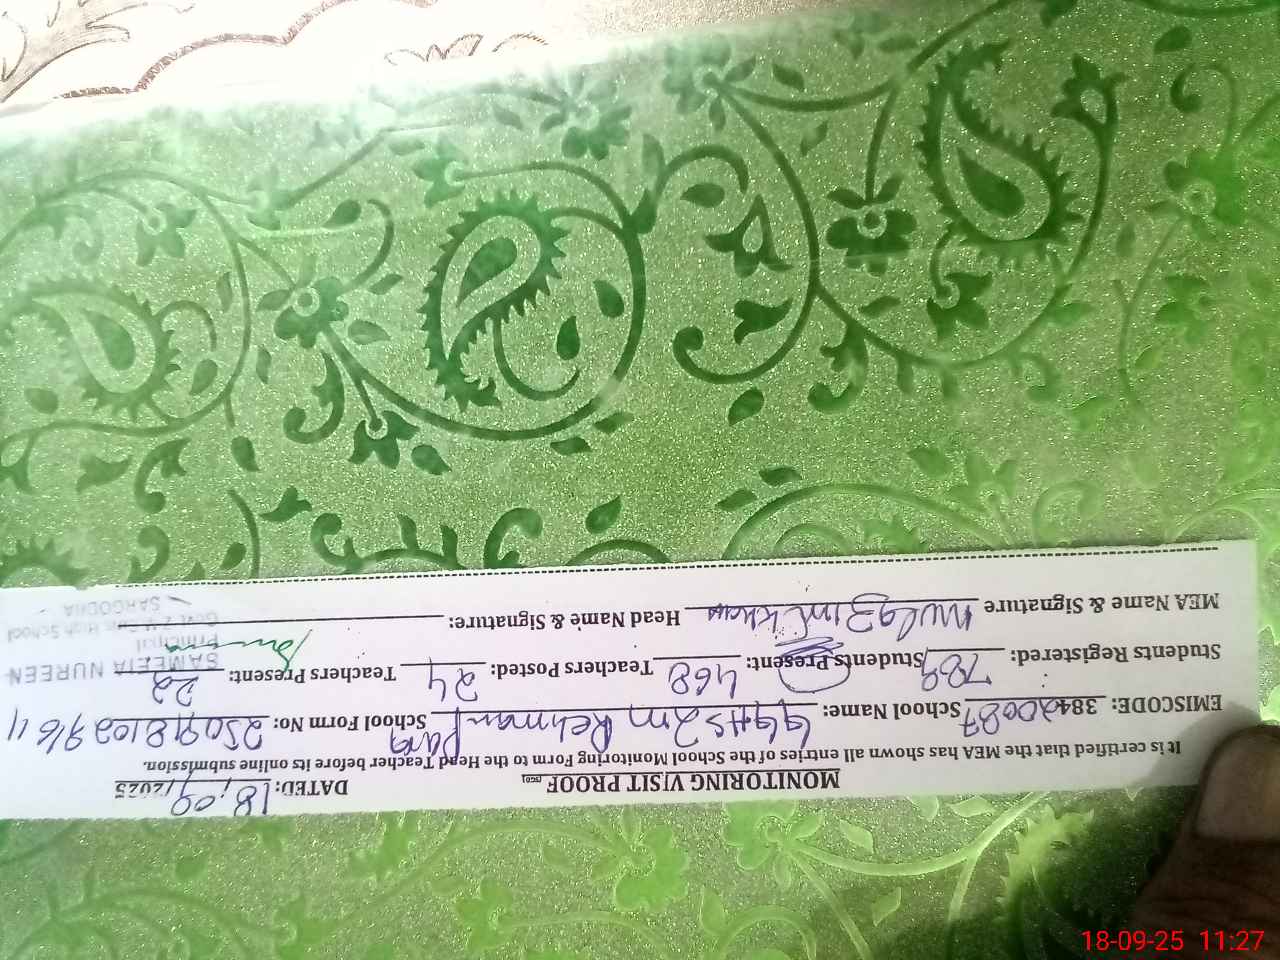 MONITORING VISIT PROOF DATED: 18/09/2025
It is certified that the MEA has shown all entries of the School Monitoring Form to the Head Teacher before its online submission.
EMISCODE: 38420087 School Name: GGHS 2m Rehman Pura School Form No:
Students Registered: 789 Students Present: 468 Teachers Posted: 24 Teachers Present: 22
MEA Name & Signature Khan Head Name & Signature:
SAMEETA NUREEN
Principal
High School
SARGODHA
18-09-25 11:27